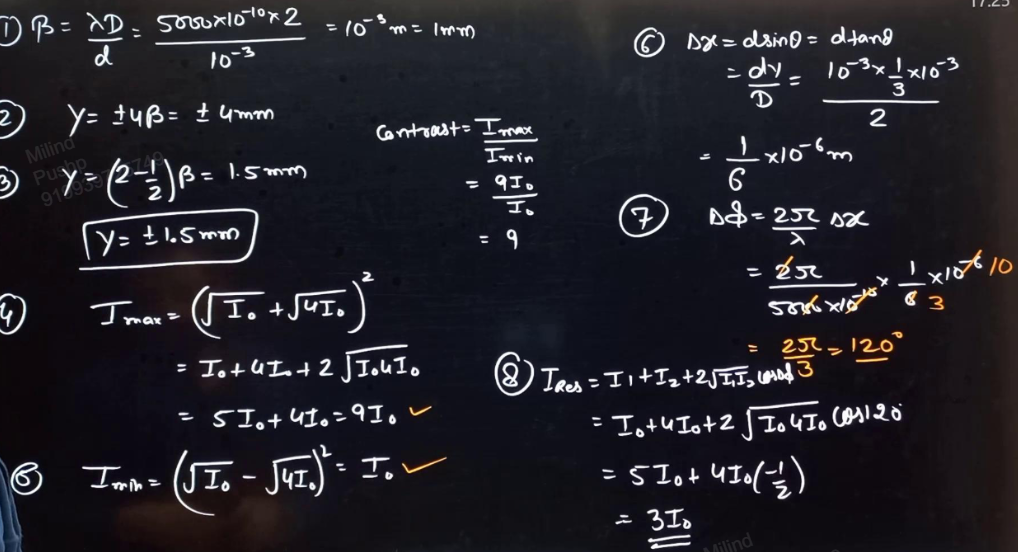 17:25
① β = λD/d = 5000×10⁻¹⁰×2/10⁻³ = 10⁻³ m = 1mm
② Y = ±4β = ±4mm
③ Y = (2-1/2)β = 1.5mm
Y = ±1.5mm
Contrast = Imax/Imin
= 9I₀/I₀
= 9
④ Imax = (√I₀ + √4I₀)²
= I₀+4I₀+2√I₀4I₀
= 5I₀+4I₀ = 9I₀ ✓
⑤ Imin = (√I₀ - √4I₀)² = I₀ ✓
⑥ Δx = dsinθ = dtanθ
= dy/D = 10⁻³×1/3×10⁻³/2
= 1/6 ×10⁻⁶ m
⑦ Δϕ = 2π/λ Δx
= 2π/5000×10⁻¹⁰ × 1/6 ×10⁻⁶ 10 3
= 2π/3 = 120°
⑧ IRes = I₁+I₂+2√I₁I₂ cosϕ
= I₀+4I₀+2√I₀4I₀ cos120°
= 5I₀+4I₀(-1/2)
= 3I₀
Milind
Milind